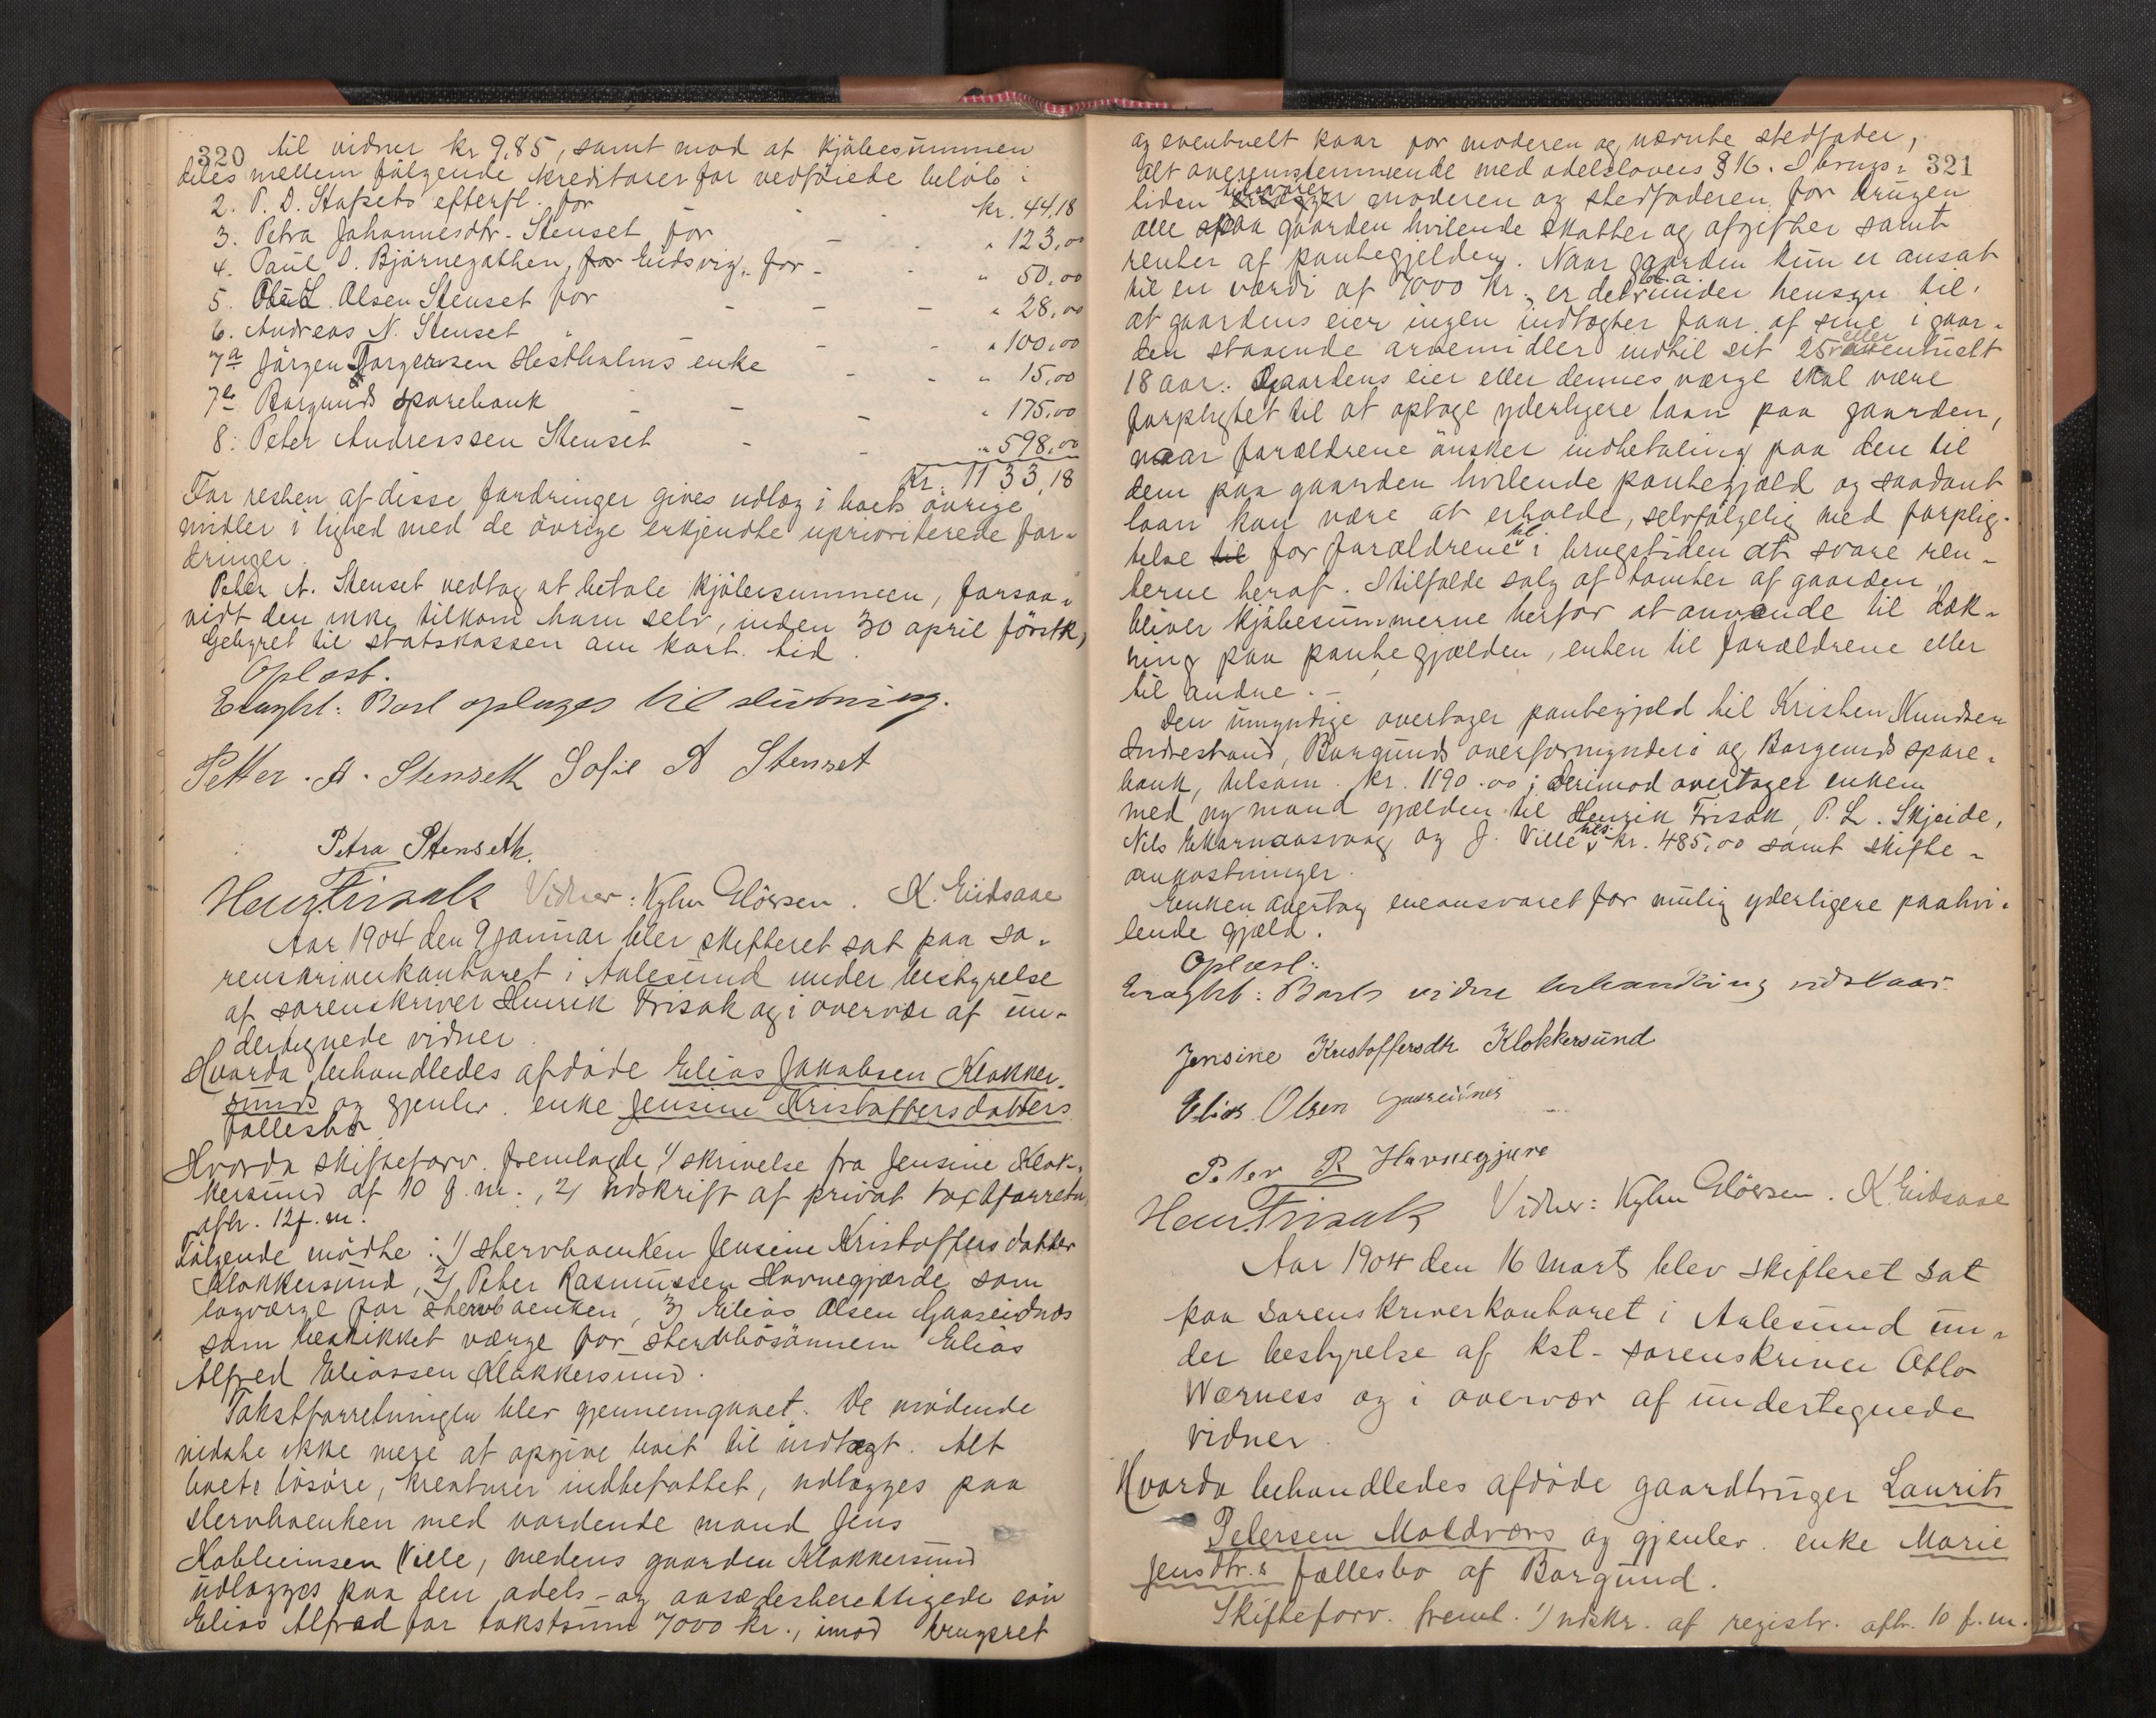 320 til vidner kr 9,85, samt mod at kjøbesummen
deles mellem følgende kreditorer for vedføiede beløb:
2. P. D. Stafsets efterfl. for - - kr. 44,18
3. Petra Johannesdtr. Stenset for - - " 123,00
4. Paul O. Bjørnegathen, for Eidsvig, for - - " 50,00
5. Ole L. Olsen Stenset for - - - " 28,00
6. Andreas N. Stenset " - - " 100,00
7a Jørgen Jørgensen Hestholms enke - - " 15,00
7b Borgunds sparebank - - - " 175,00
8. Peter Andreassen Stenset - - " 598,00
Kr. 1133,18
For resten af disse fordringer gives udlæg i boets øvrige
midler i lighed med de øvrige erkjendte uprioriterede for-
dringer.
Peter A. Stenset vedtog at betale kjøbesummen, forsaa-
vidt den ikke tilkom ham selv, inden 30 april førstk,
Gebyret til statskassen om kort tid.
Oplæst.
Eragtet: Boet optages til slutning.
Petter. A. Stenseth Sofie A Stenset
Petra Stenseth.
Henr. Frisak Vidner: Kylm Gløersen. K. Eidsaae
Aar 1904 den 9 januar blev skifteret sat paa so-
renskriverkontoret i Aalesund under bestyrelse
af sorenskriver Henrik Frisak og i overvær af un-
dertegnede vidner.
Hvorda behandledes afdøde Elias Jakobsen Klokker-
sunds og gjenlev. enke Jensine Kristoffersdatters
fællesbo
Hvorda skifteforv. fremlagde 1) skrivelse fra Jensine Klok-
kersund af 10 f.m., 2) udskrift af privat taxtforretn.
afh. 12 f.m.
Følgende mødte: 1) stervboenken Jensine Kristoffersdatter
Klokkersund, 2) Peter Rasmussen Havnegjærde som
lagværge for stervboenken, 3) Elias Olsen Gaaseidnes
som beskikket værge for stervbosønnen Elias
Alfred Eliassen Klokkersund.
Takstforretningen blev gjennemgaaet. De mødende
vidste ikke mere at opgive boet til indtægt. Alt
boets løsøre, kreaturer indbefattet, udlægges paa
stervboenken med vordende mand Jens
Kobbeinsen Ville, medens gaarden Klokkersund
udlægges paa den odels- og aasædesberettigede søn
Elias Alfred for takstsum 7000 kr., imod brugsret
og eventuelt kaar for moderen og nævnte stedfader,
alt overensstemmende med odelslovens § 16. I brugs- 321
tiden udreder moderen og stedfaderen for brugen
alle paa gaarden hvilende skatter og afgifter samt
renter af pantegjelden. Naar gaarden kun er ansat
til en værdi af 7000 kr., er det bl.a. under hensyn til,
at gaardens eier ingen indtægter faar af sine i gaar-
den staaende arvemidler indtil sit 25 eller eventuelt
18 aar. Gaardens eier eller dennes værge skal være
forpligtet til at optage yderligere laan paa gaarden,
naar forældrene ønsker indbetaling paa den til
dem paa gaarden hvilende pantegjæld og saadant
laan kan være at erholde, selvfølgelig med forplig-
telse for forældrene til i brugstiden at svare ren-
terne heraf. I tilfælde salg af tomter af gaarden,
bliver kjøbesummerne herfor at anvende til dæk-
ning paa pantegjælden, enten til forældrene eller
til andre. -
Den umyndige overtager pantegjeld til Kristen Knudsen
Indrestrand, Borgunds overformynderi og Borgunds spare-
bank, tilsam. kr. 1190.00; derimod overtager enken
med ny mand gjælden til Henrik Frisak, P. L. Skjeide,
Nils Ekornaasvaag og J. Ville tils. kr. 485,00 samt skifte-
omkostninger.
Enken overtog eneansvaret for mulig yderligere paahvi-
lende gjæld.
Oplæst.
Eragtet: Boets videre behandling udstaar.
Jensine Kristoffersdtr Klokkersund
Elias Olsen Gaaseidnes
Peter R Havnegjære
Henr. Frisak Vidner: Kylm Gløersen. K. Eidsaae
Aar 1904 den 16 Marts blev skifteret sat
paa sorenskriverkontoret i Aalesund un-
der bestyrelse af kst. sorenskriver Otto
Wærness og i overvær af undertegnede
vidner.
Hvorda behandledes afdøde gaardbruger Laurits
Petersen Moldværs og gjenlev. enke Marie
Jensdtr.s fællesbo af Borgund.
Skifteforv. freml. 1) udskr. af registr. afh. 10 f.m.